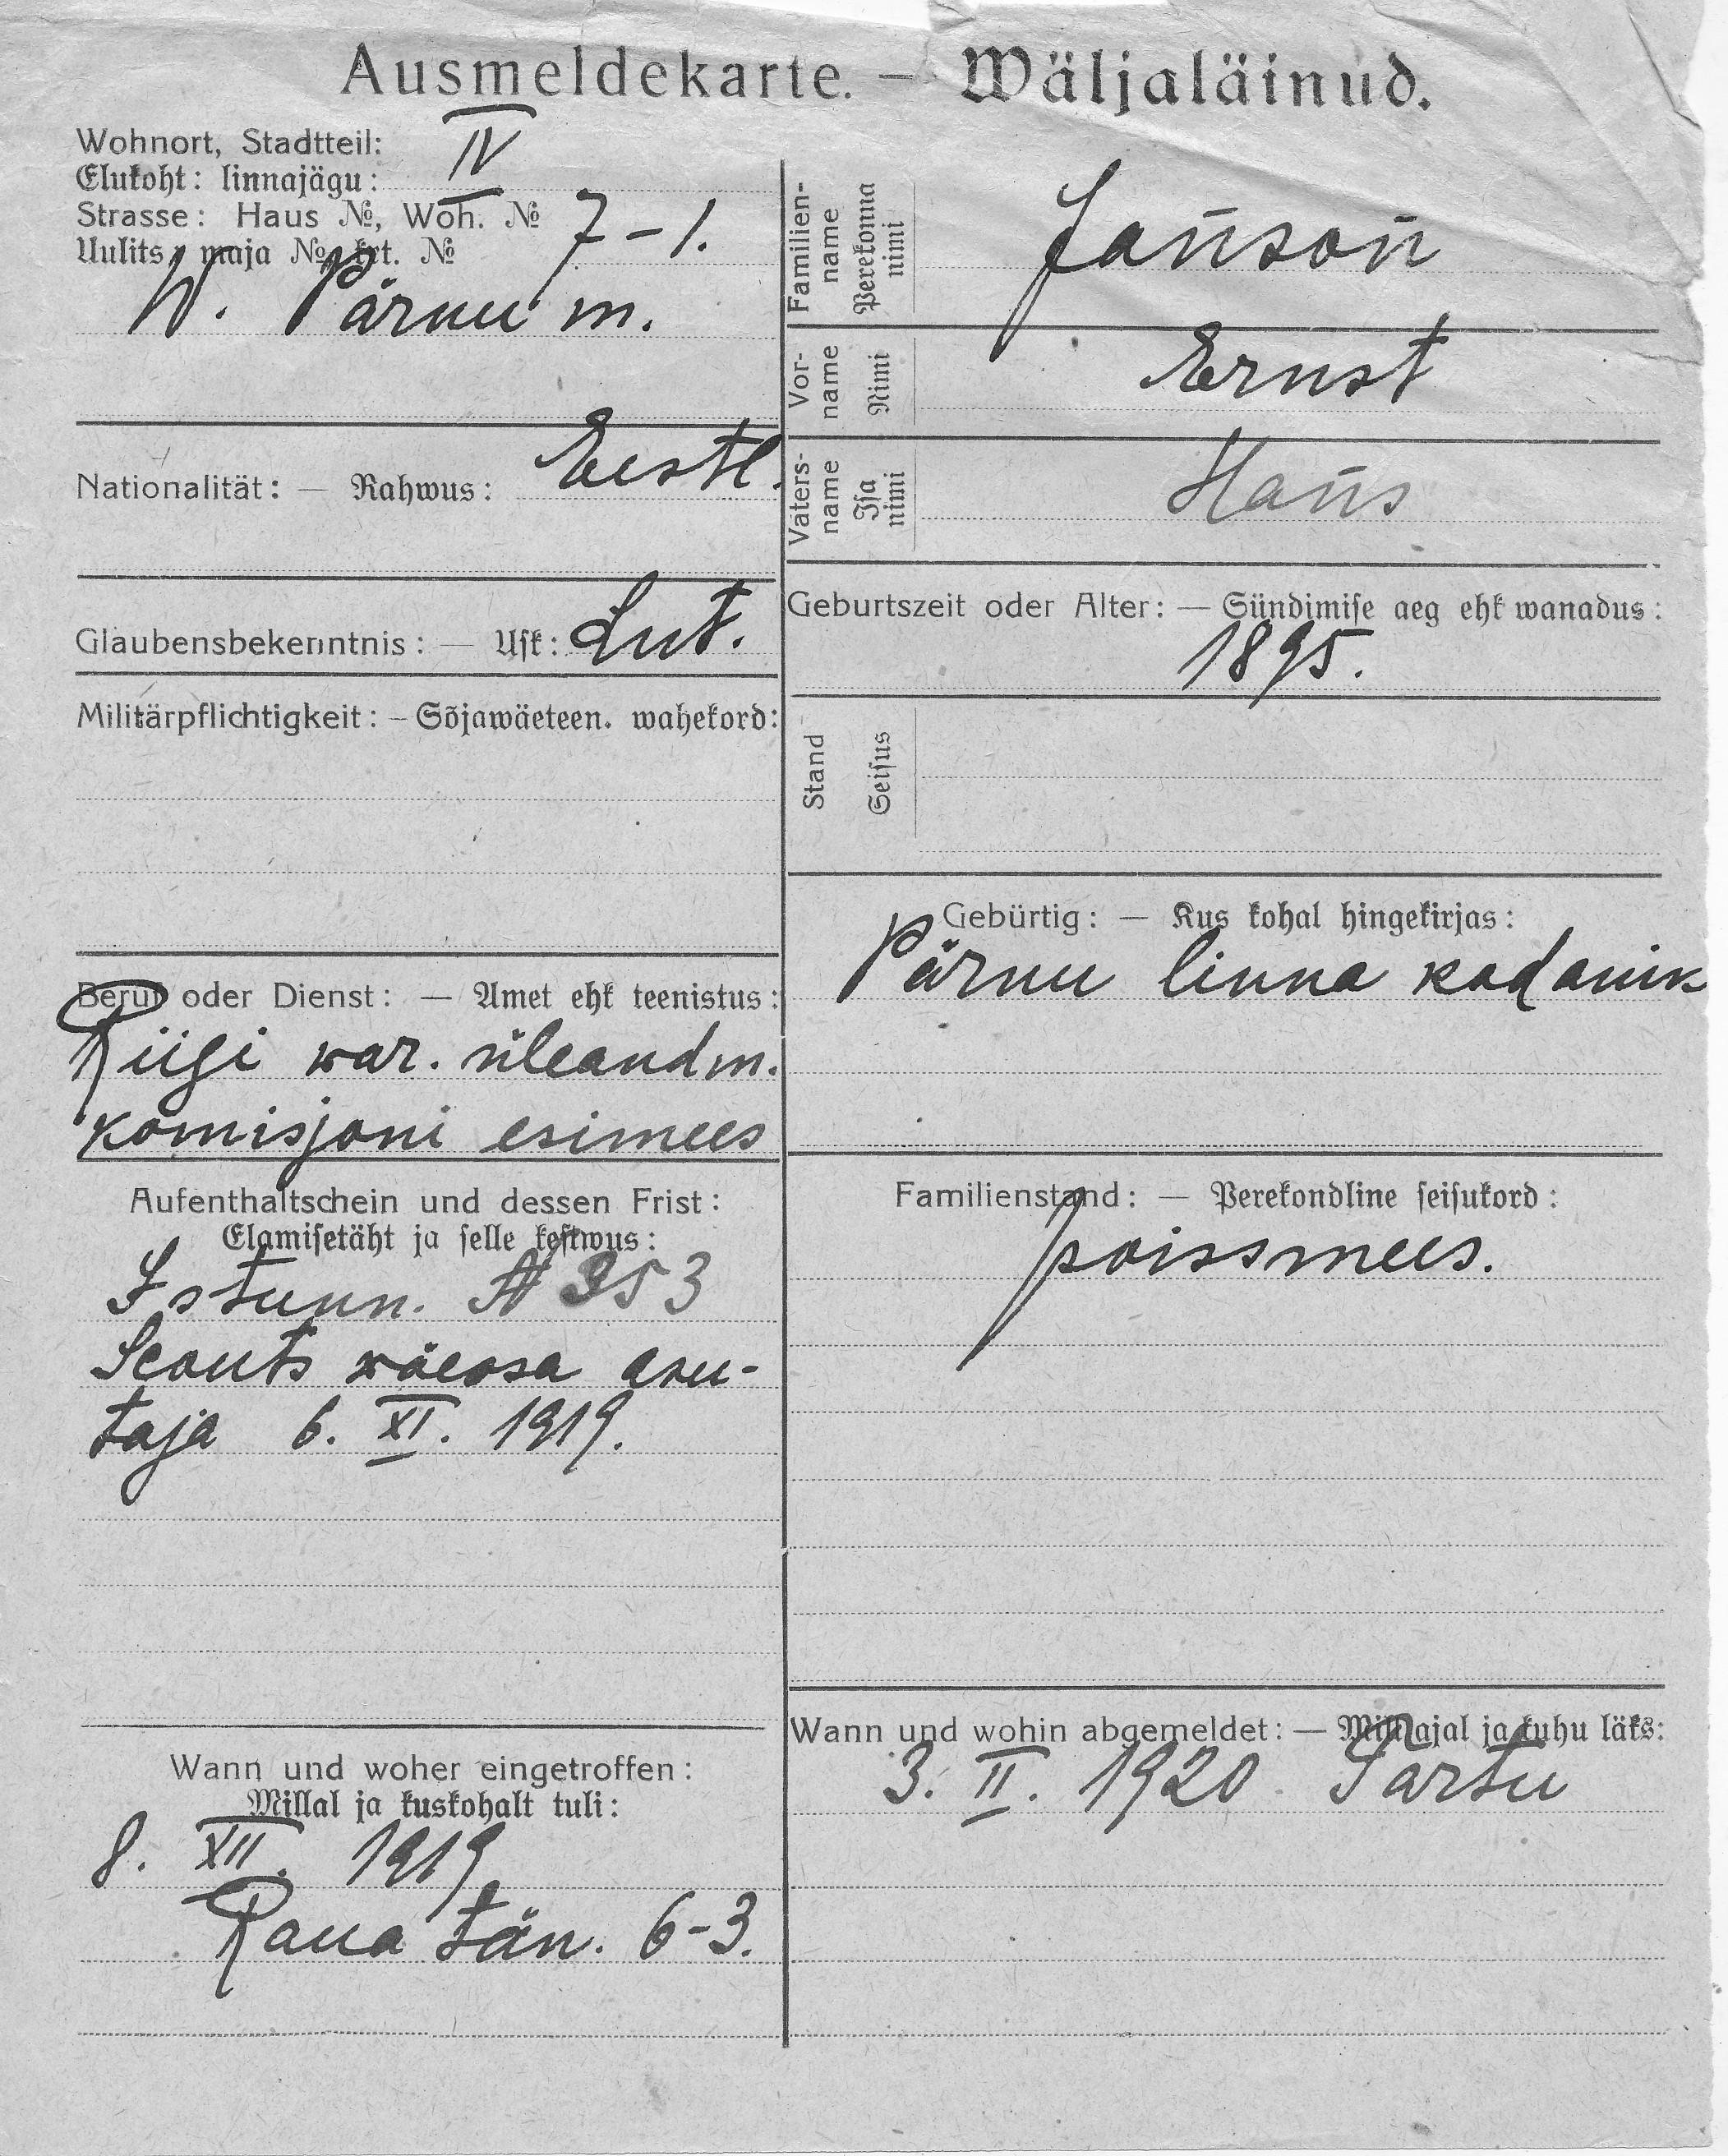 Ausmeldekarte. — Wäljaläinud.
Wohnort, Stadtteil:
Elukoht: linnajägu: IV
Strasse: Haus №, Woh. №
Uulits, maja № krt. № 7-1.
W. Pärnu m.
Nationalität: — Rahwus: Eestl.
Glaubensbekenntnis: — Usk: Lut.
Militärpflichtigkeit: — Sõjawäeteen. wahekord:
Beruf oder Dienst: — Amet ehk teenistus:
Riigi war. üleandm.
komisjoni esimees
Aufenthaltschein und dessen Frist:
Elamisetäht ja selle kestwus:
I stunn. N 953
Scouts wäeosa asu-
taja 6. XI. 1919.
Wann und woher eingetroffen:
Millal ja kuskohalt tuli:
8. XII. 1919
Raua tän. 6-3.
Familien-
name
Perekonna
nimi
Janson
Vor-
name
Nimi
Ernst
Vaters-
name
Isa
nimi
Hans
Geburtszeit oder Alter: — Sündimise aeg ehk wanadus:
1895.
Stand
Seisus
Gebürtig: — Kus kohal hingekirjas:
Pärnu linna kodanik
Familienstand: — Perekondline seisukord:
poissmees.
Wann und wohin abgemeldet: — Mil ajal ja kuhu läks:
3. II. 1920 Tartu